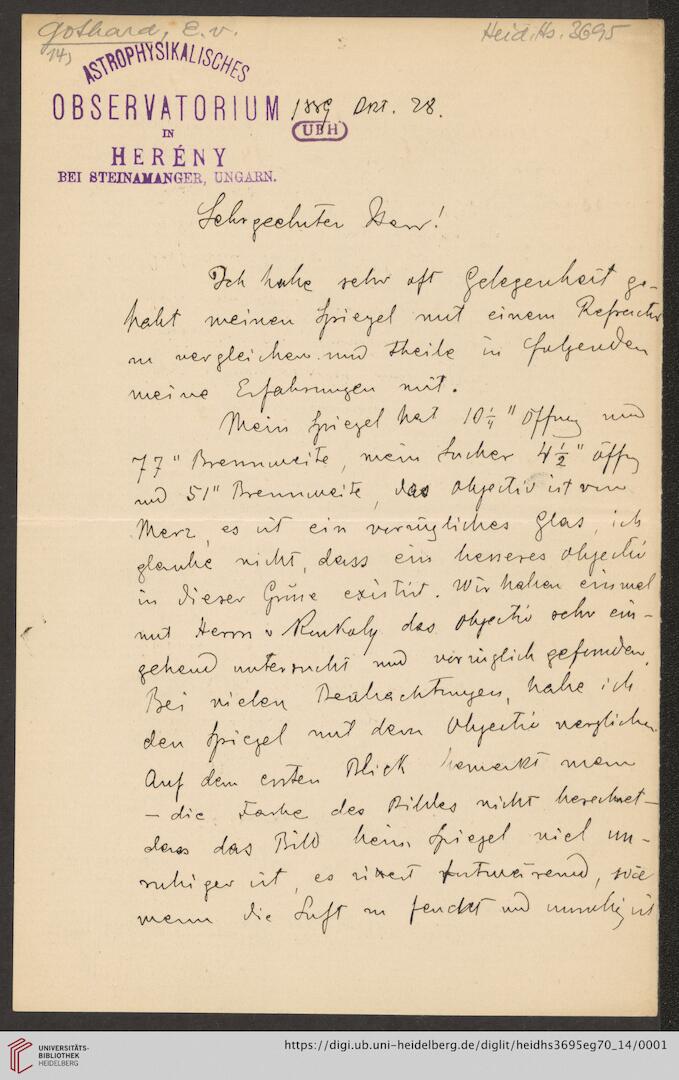 Gothard, E. v.
Heid. Hs. 3695
14)
ASTROPHYSIKALISCHES
OBSERVATORIUM
IN
HERÉNY
BEI STEINAMANGER, UNGARN.
1889 Okt. 28.
UBH
Sehrgeehrter Herr!
Ich habe sehr oft Gelegenheit ge-
habt meinen Spiegel mit einem Refractor
zu vergleichen und theile in folgenden
meine Erfahrungen mit.
Mein Spiegel hat 10¼" Öffnung und
77" Brennweite, mein Sucher 4½" Öffng
und 51" Brennweite, das Objectiv ist von
Merz, es ist ein vorzügliches Glas, ich
glaube nicht, dass ein besseres Objectiv
in dieser Grösse existirt. Wir haben einmal
mit Herrn v Konkoly das Objectiv sehr ein-
gehend untersucht und vorzüglich gefunden.
Bei vielen Beobachtungen, habe ich
den Spiegel mit dem Objectiv verglichen.
Auf dem ersten Blick bemerkt man
- die Farbe des Bildes nicht berechnet -
dass das Bild beim Spiegel viel un-
ruhiger ist, es
wenn die Luft zu feucht und unruhig ist
UNIVERSITÄTS-
BIBLIOTHEK
HEIDELBERG
https://digi.ub.uni-heidelberg.de/diglit/heidhs3695eg70_14/0001